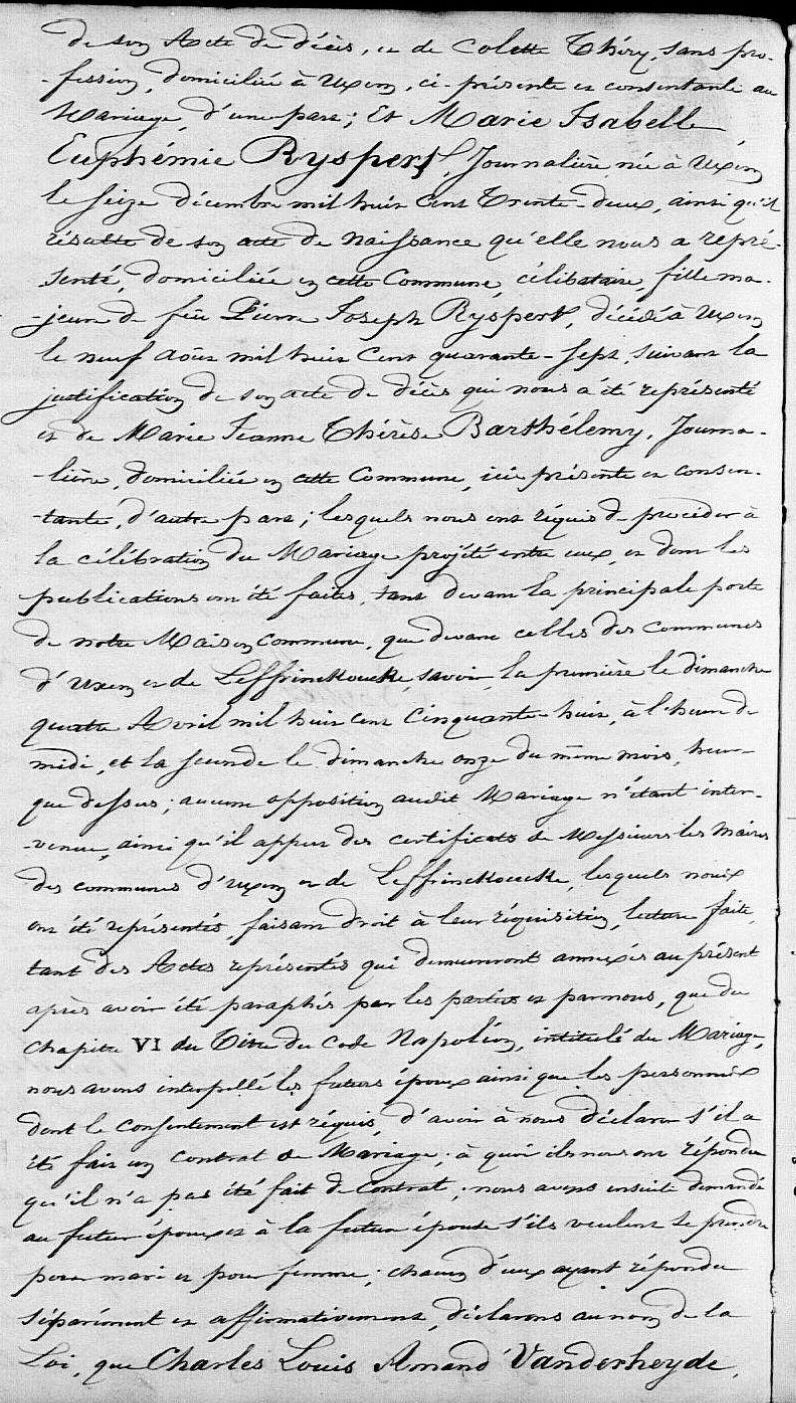 de son Acte de décès, et de Colette Théry, sans pro-
-fession, domiciliée à Uxem, ci-présente et consentante au
Mariage, d'une part; Et Marie Isabelle
Euphémie Ryspert, Journalière, née à Uxem
le seize décembre mil huit cent Trente-deux, ainsi qu'il
résulte de son acte de naissance qu'elle nous a repré-
-senté, domiciliée en cette Commune, célibataire, fille ma-
-jeure de feu Pierre Joseph Ryspert, décédé à Uxem
le neuf août mil huit Cent quarante-sept, suivant la
justification de son acte de décès qui nous a été représenté
et de Marie Jeanne Thérèse Barthélemy, Journa-
-lière, domiciliée en cette Commune, ici présente et consen-
-tante, d'autre part; lesquels nous ont réquis de procéder à
la célébration du Mariage projété entre eux, et dont les
publications ont été faites, tant devant la principale porte
de notre Maison commune, que devant celles des Communes
d'Uxem et de Leffrinckoucke, savoir, la première le dimanche
quatre Avril mil huit cent Cinquante-huit, à l'heure de
midi, et la seconde le dimanche onze du même mois, heure
que dessus; aucune opposition audit Mariage n'étant inter-
-venue, ainsi qu'il appert des certificats de Messieurs les Maires
des communes d'Uxem et de Leffrinckoucke, lesquels nous
ont été représentés, faisant droit à leur réquisition, lecture faite,
tant des Actes représentés qui demeureront annexés au présent
après avoir été paraphés par les parties et par nous, que du
chapitre VI du Titre du Code Napoléon, intitulé du Mariage,
nous avons interpellé les futurs époux ainsi que les personnes
dont le consentement est réquis, d'avoir à nous déclarer s'il a
été fait un contrat de Mariage; à quoi ils nous ont répondu
qu'il n'a pas été fait de Contrat; nous avons ensuite demandé
au futur époux et à la future épouse s'ils veulent se prendre
pour mari et pour femme; chacun d'eux ayant répondu
séparément et affirmativement, déclarons au nom de la
Loi, que Charles Louis Amand Vanderheyde,